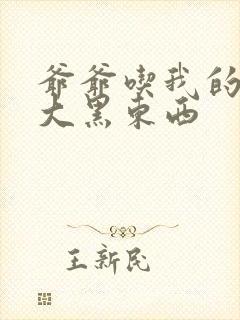 爷爷喫我的
大黑东西
王新民